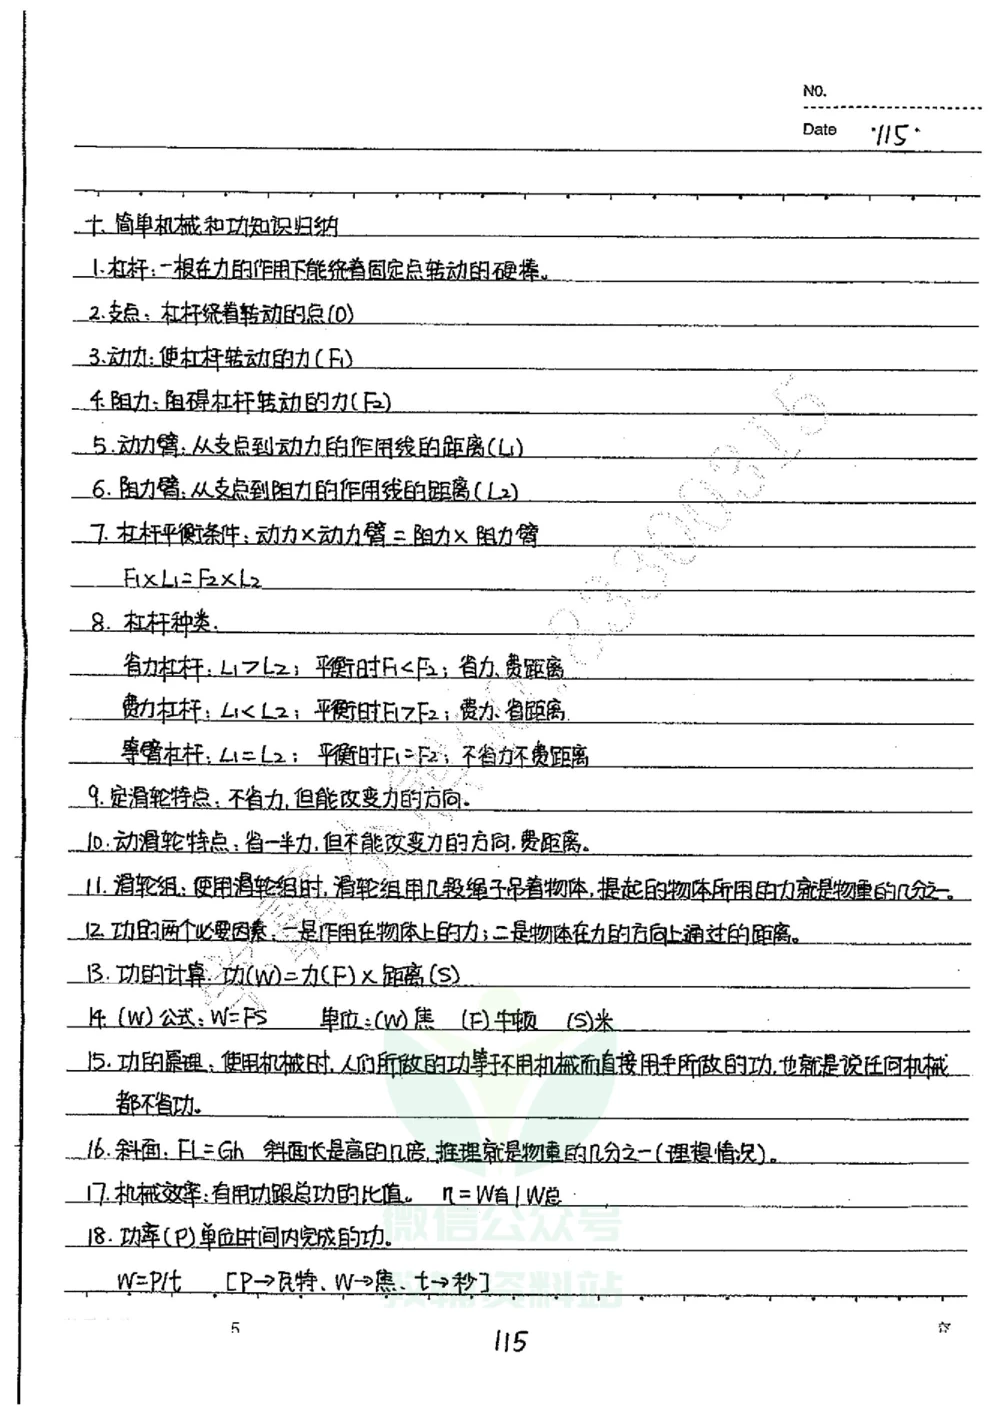 NO.
Date ·115·
十、简单机械和功知识归纳
1.杠杆:一根在力的作用下能绕着固定点转动的硬棒。
2.支点:杠杆绕着转动的点(O)
3.动力:使杠杆转动的力(F1)
4.阻力:阻碍杠杆转动的力(F2)
5.动力臂:从支点到动力的作用线的距离(L1)
6.阻力臂:从支点到阻力的作用线的距离(L2)
7.杠杆平衡条件:动力×动力臂=阻力×阻力臂
F1×L1=F2×L2
8.杠杆种类.
省力杠杆:L1>L2;平衡时F1<F2;省力、费距离
费力杠杆:L1<L2;平衡时F1>F2;费力、省距离
等臂杠杆:L1=L2;平衡时F1=F2;不省力不费距离
9.定滑轮特点:不省力,但能改变力的方向。
10.动滑轮特点:省一半力,但不能改变力的方向,费距离。
11.滑轮组:使用滑轮组时,滑轮组用几段绳子吊着物体,提起的物体所用的力就是物重的几分之一。
12.功的两个必要因素:一是作用在物体上的力;二是物体在力的方向上通过的距离。
13.功的计算.功(W)=力(F)×距离(S)
14.(W)公式:W=FS 单位:(W)焦 (F)牛顿 (S)米
15.功的原理:使用机械时,人们所做的功等于不用机械而直接用手所做的功,也就是说任何机械
都不省功。
16.斜面:FL=Gh 斜面长是高的几倍,推理就是物重的几分之一(理想情况)。
17.机械效率:有用功跟总功的比值。 η=W有/W总
18.功率(P)单位时间内完成的功。
W=P/t [P→瓦特、W→焦、t→秒]
微信公众号
教辅资料站
5
115